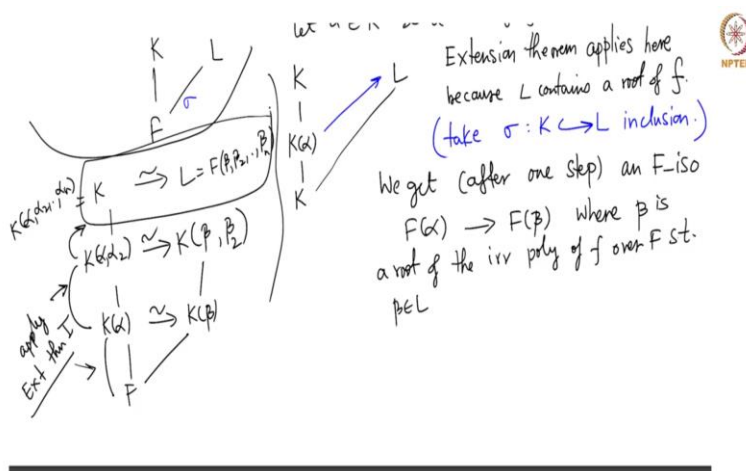 K
L
σ
F
K(α,α₂,..,αₙ) = K ≅→ L = F(β,β₂,..,βₙ)
K(α,α₂) ≅→ K(β,β₂)
K(α) ≅→ K(β)
F
apply
Ext thm I
K
L
K(α)
K
Extension theorem applies here
because L contains a root of f.
(take σ: K ↪ L inclusion.)
We get (after one step) an F-iso
F(α) → F(β) where β is
a root of the irr poly of f over F s.t.
β∈L
NPTEL